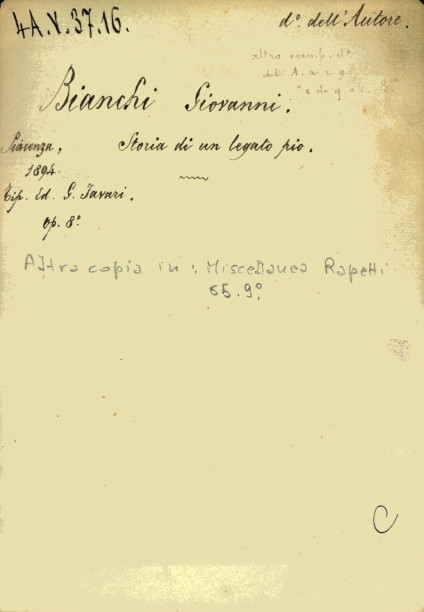 4A.V.37.16.
d°. dell'Autore.
altro
dell' A.
Bianchi Giovanni.
Piacenza,
Storia di un legato pio.
1894.
Tip. Ed. G. Tavari.
op. 8°.
Altra copia in : Miscellanea Rapetti
65.9°.
C